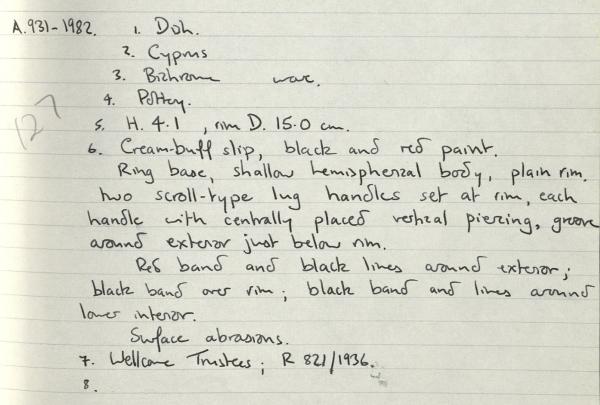 A.931-1982. 1. Dish.
2. Cyprus
3. Bichrome ware.
4. Pottery.
127
5. H. 4.1 , rim D. 15.0 cm.
6. Cream-buff slip, black and red paint.
Ring base, shallow hemispherical body, plain rim.
two scroll-type lug handles set at rim, each
handle with centrally placed vertical piercing, groove
around exterior just below rim.
Red band and black lines around exterior;
black band over rim; black band and lines around
lower interior.
Surface abrasions.
7. Wellcome Trustees; R 821/1936.
8.